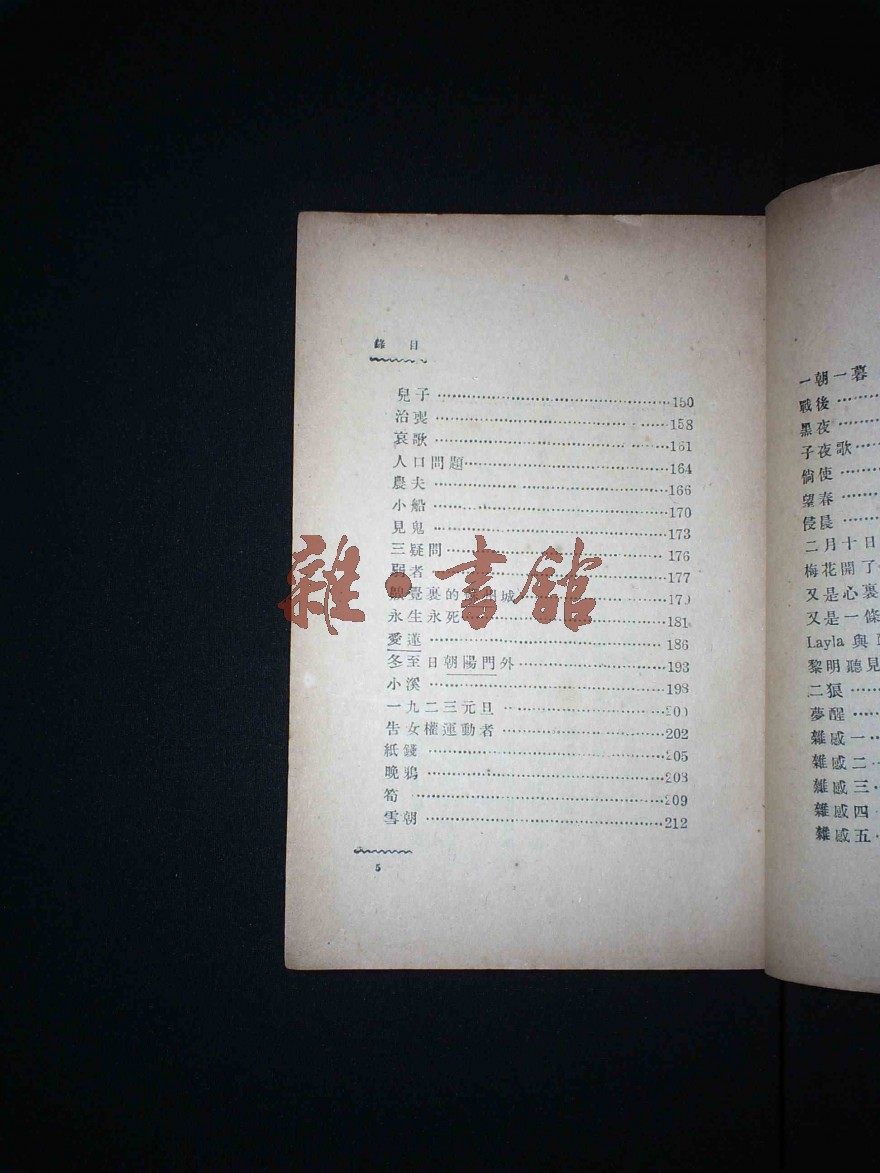 錄 目
兒子 150
治喪 158
哀歌 161
人口問題 164
農夫 166
小船 170
見鬼 173
三疑問 176
弱者 177
覺裏的 城 179
永生永死 181
愛蓮 186
冬至日朝陽門外 193
小溪 198
一九二三元旦 200
告女權運動者 202
紙錢 205
晚鴉 208
筍 209
雪朝 212
5
一朝一暮
戰後
黑夜
子夜歌
倘使
望春
侵晨
二月十日
梅花開了
又是心裏
又是一條
Layla 與
黎明聽見
二狼
夢醒
雜感一
雜感二
雜感三
雜感四
雜感五
雜·書館